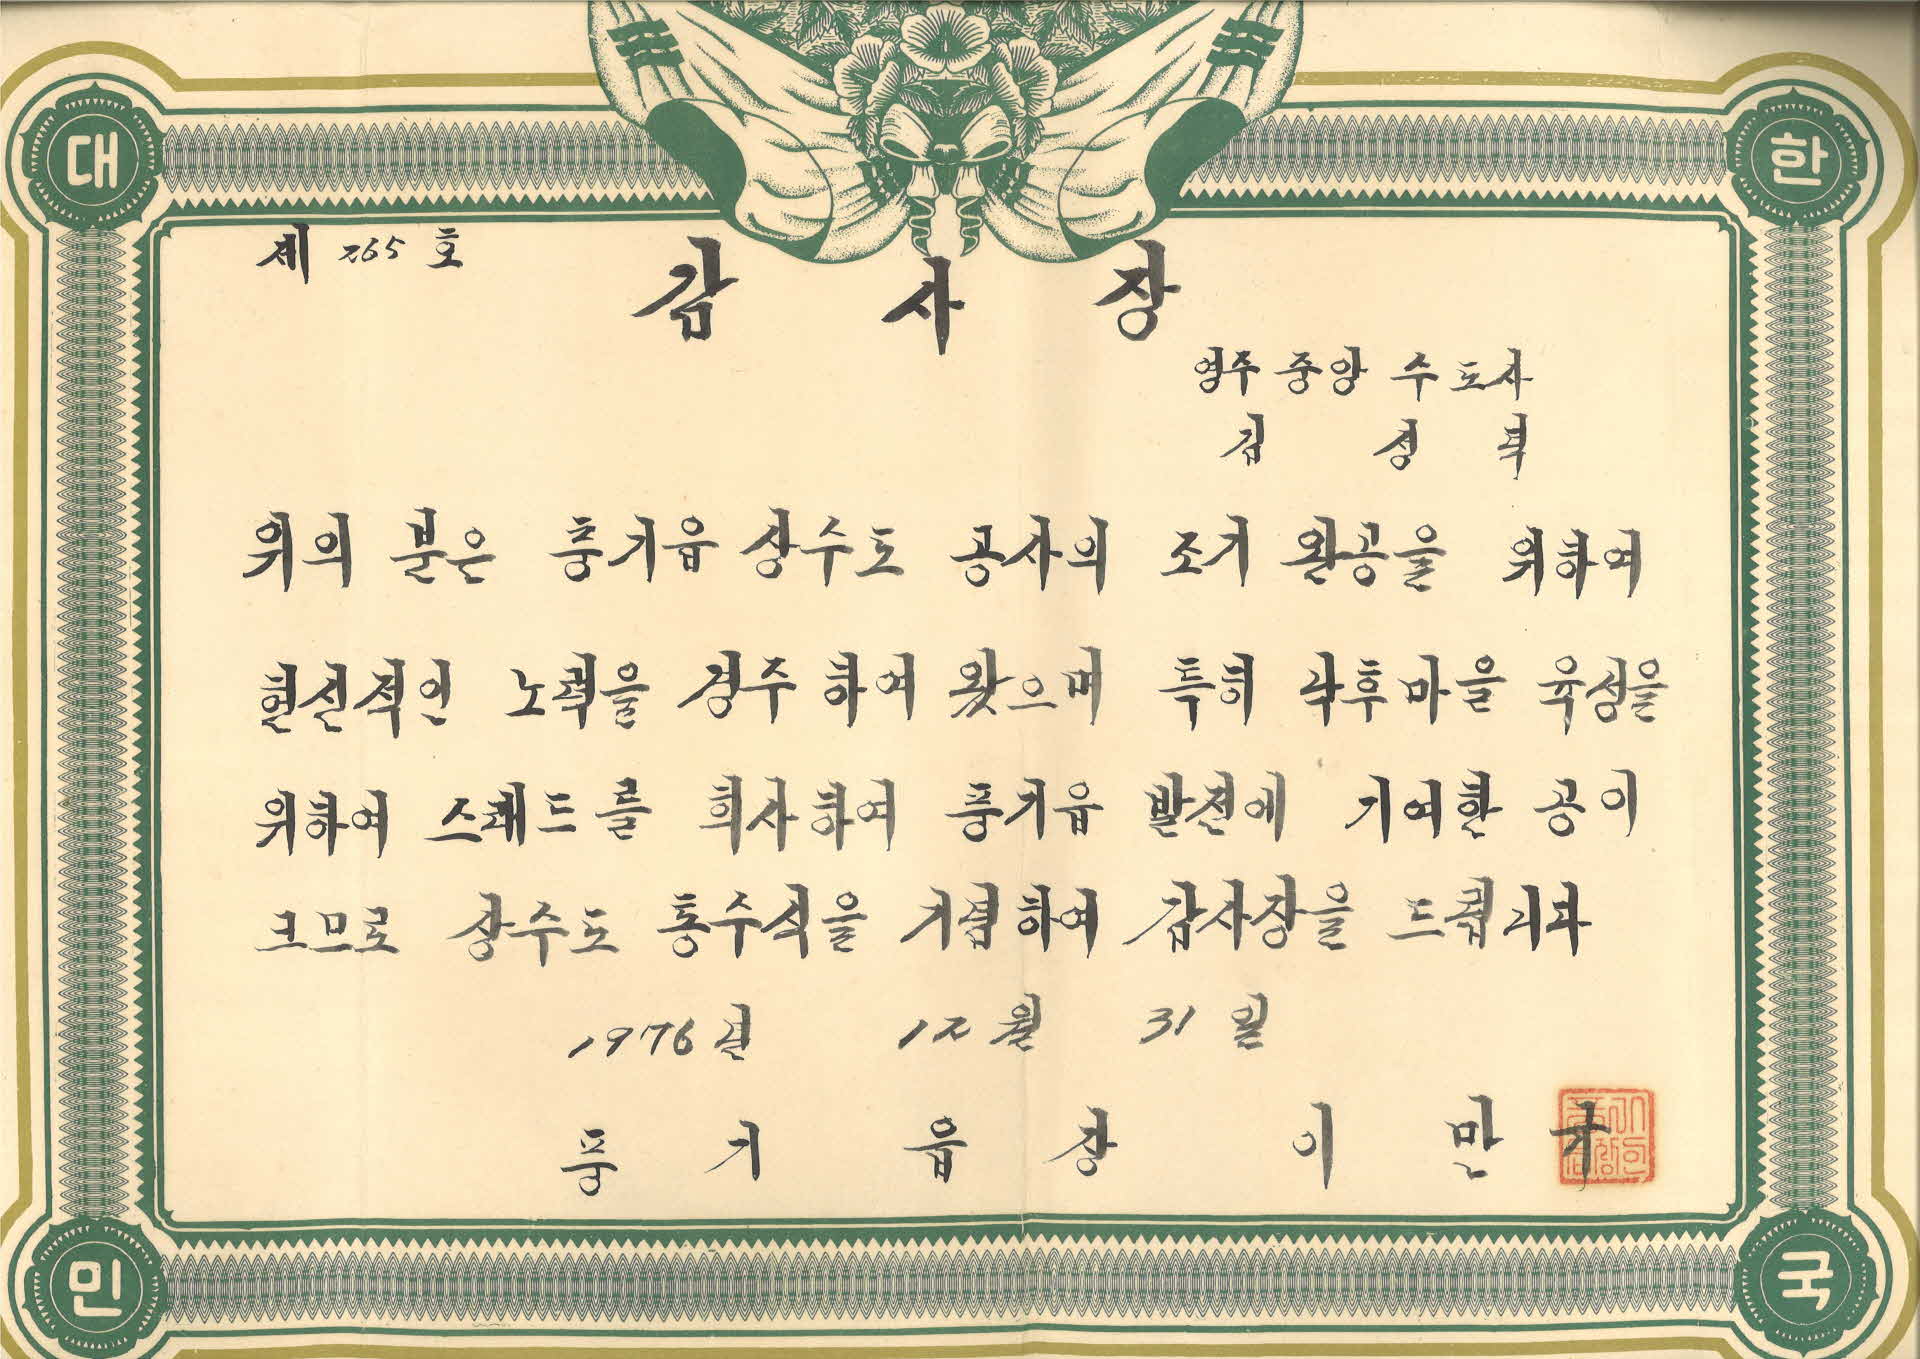 대 한
제 265 호
감 사 장
영주 중앙 수도사
김 성
위의 분은 풍기읍 상수도 공사의 조기 완공을 위하여
헌신적인 노력을 경주 하여 왔으며 특히 낙후마을 육성을
위하여 스레드를 희사하여 풍기읍 발전에 기여한 공이
크므로 상수도 통수식을 기념하여 감사장을 드립니다
1976년 12월 31일
풍 기 읍 장 이 만
민 국